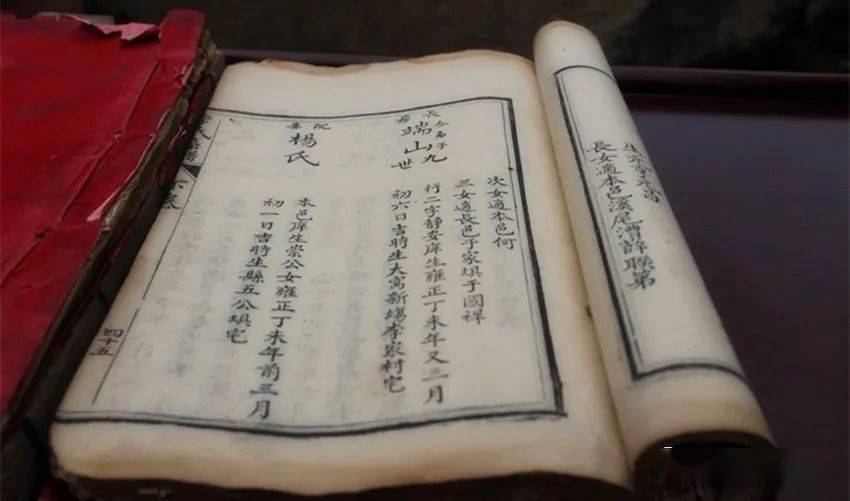 長女適本邑溪尾漕薛聯第
次女適本邑何
三女適長邑于家埧于國祥
九世
端山
行二字靜安庠生雍正丁未年又三月
初六日吉時生大窩新塲李家村宅
配
楊氏
本邑庠生崇公女雍正丁未年前三月
初一日吉時生縣五公埧宅
四十五